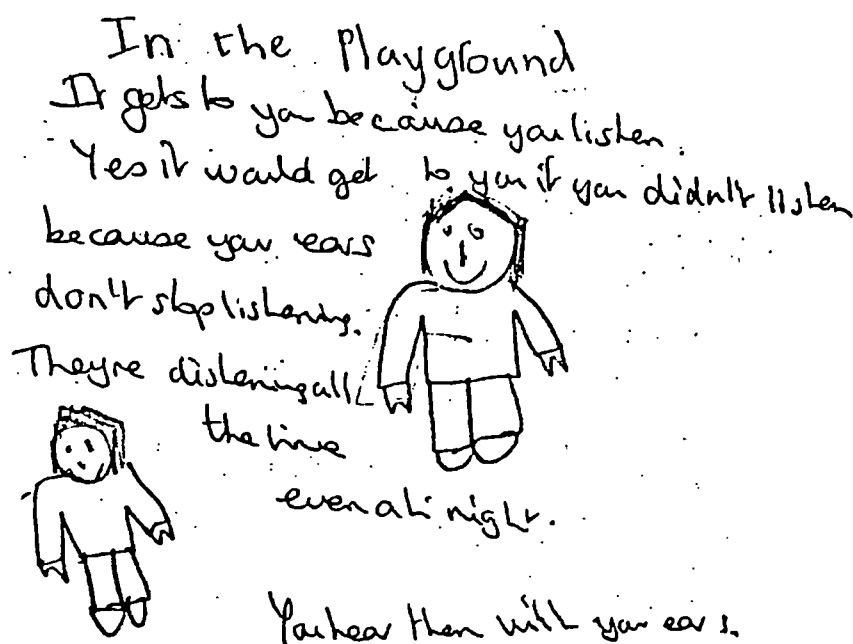 In the Playground
It gets to you because you listen.
Yes it would get to you if you didn't listen
because your ears
don't stop listening.
They're distening all
the time
even at night.
You hear them with your ears.